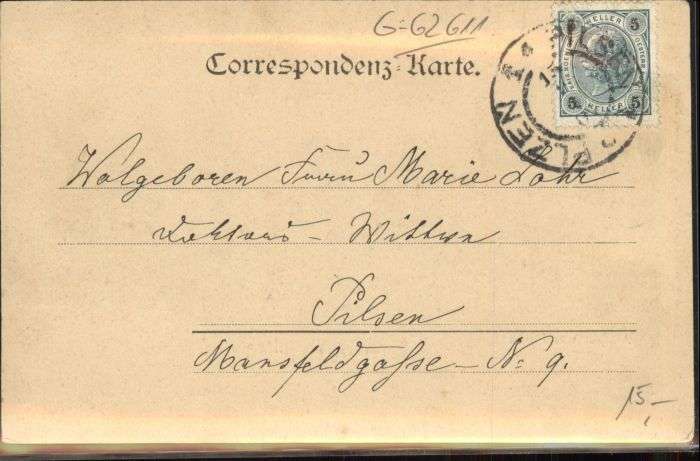 G=62611
Correspondenz-Karte.
5 HELLER 5
5 HELLER 5
PLZEŇ
Wolgeboren Frau Marie Lohr
Doktors – Wittwe
Pilsen
Mansfeldgasse – N: 9.
15,–